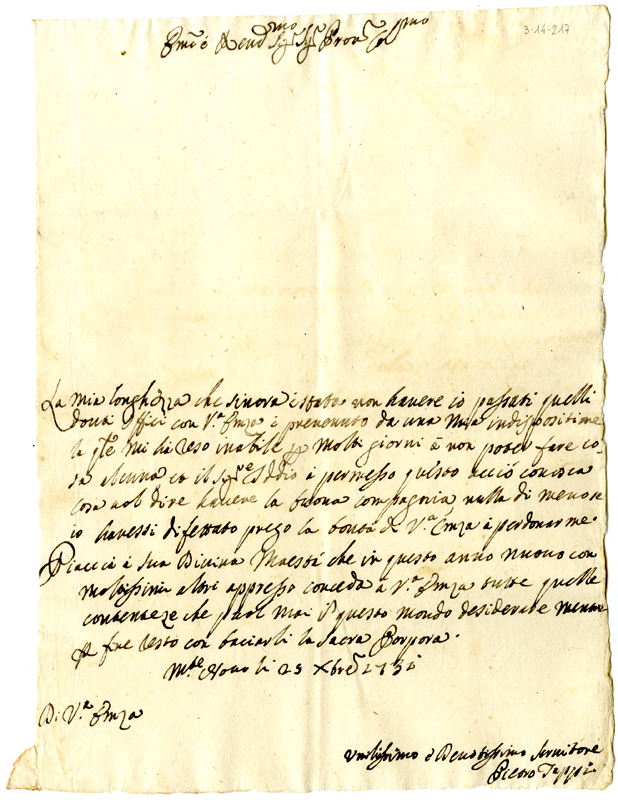 3-14-217
Emō e Rend.mo Sig.r Sig.r Pron
La mia longhezza che sinora è stata non havere io passati quelli
dovuti Offici con V.a Emza è prevenuto da una mia indispositione
la qle mi hà reso inabile per molti giorni à non poter fare co-
sa alcuna et il Sig.re Iddio à permesso questo acciò conosca
cosa vol dire havere la buona compagnia nulla di meno se
io havessi difettato prego la bontà di V.a Emza à perdonarme.
Piaccia à Sua Divina Maestà che in questo anno nuovo con
moltissimi altri appresso conceda à V.a Emza tutte quelle
contentezze che puol mai in questo mondo desiderare mentre
per fine resto con baciarli la Sacra Porpora.
M.te Novo li 23 Xbre 1731
Di V.a Emza
Umilissimo e Devotissimo Servitore
Pietro